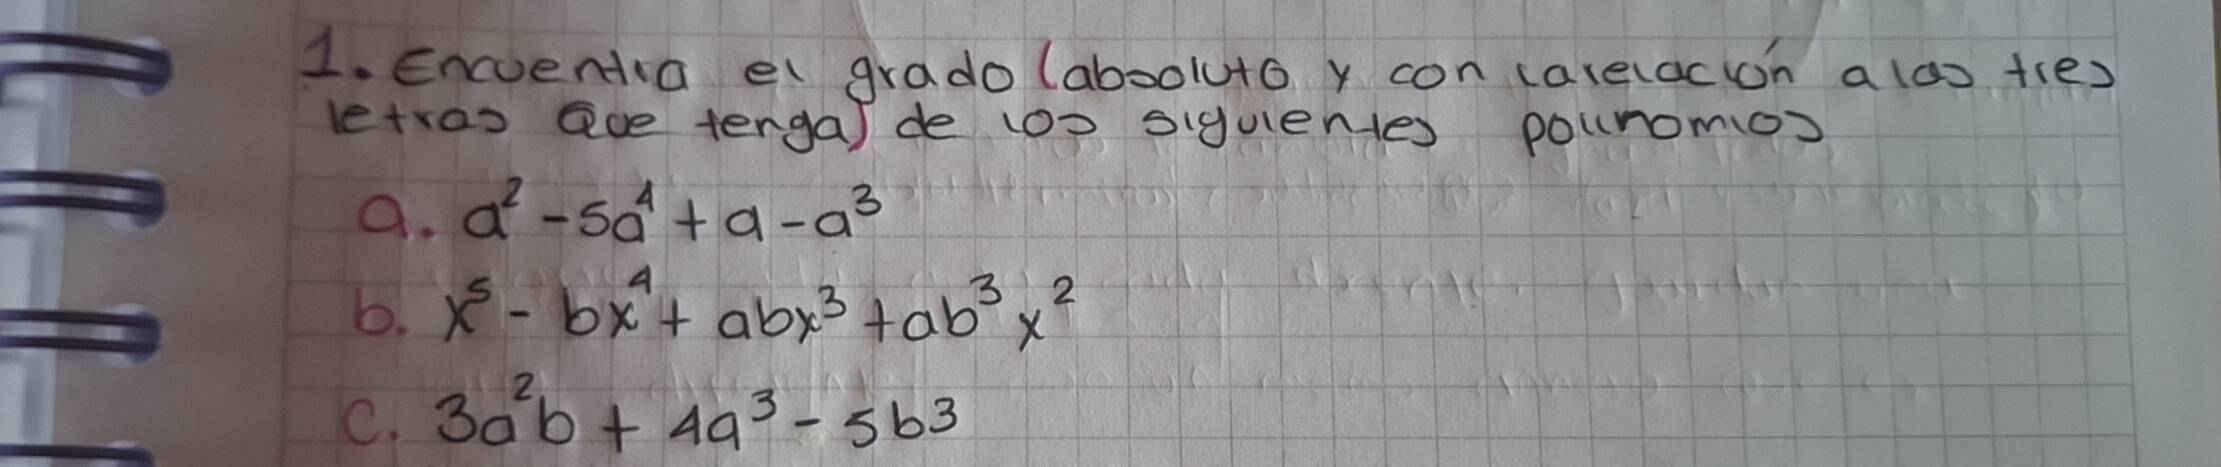 1. Encuentra el grado (absoluto y con larelación a las tres
letras Que tenga) de los siguientes polinomios
a. a² - 5a⁴ + a - a³
b. x⁵ - bx⁴ + abx³ + ab³x²
c. 3a²b + 4a³ - 5b3